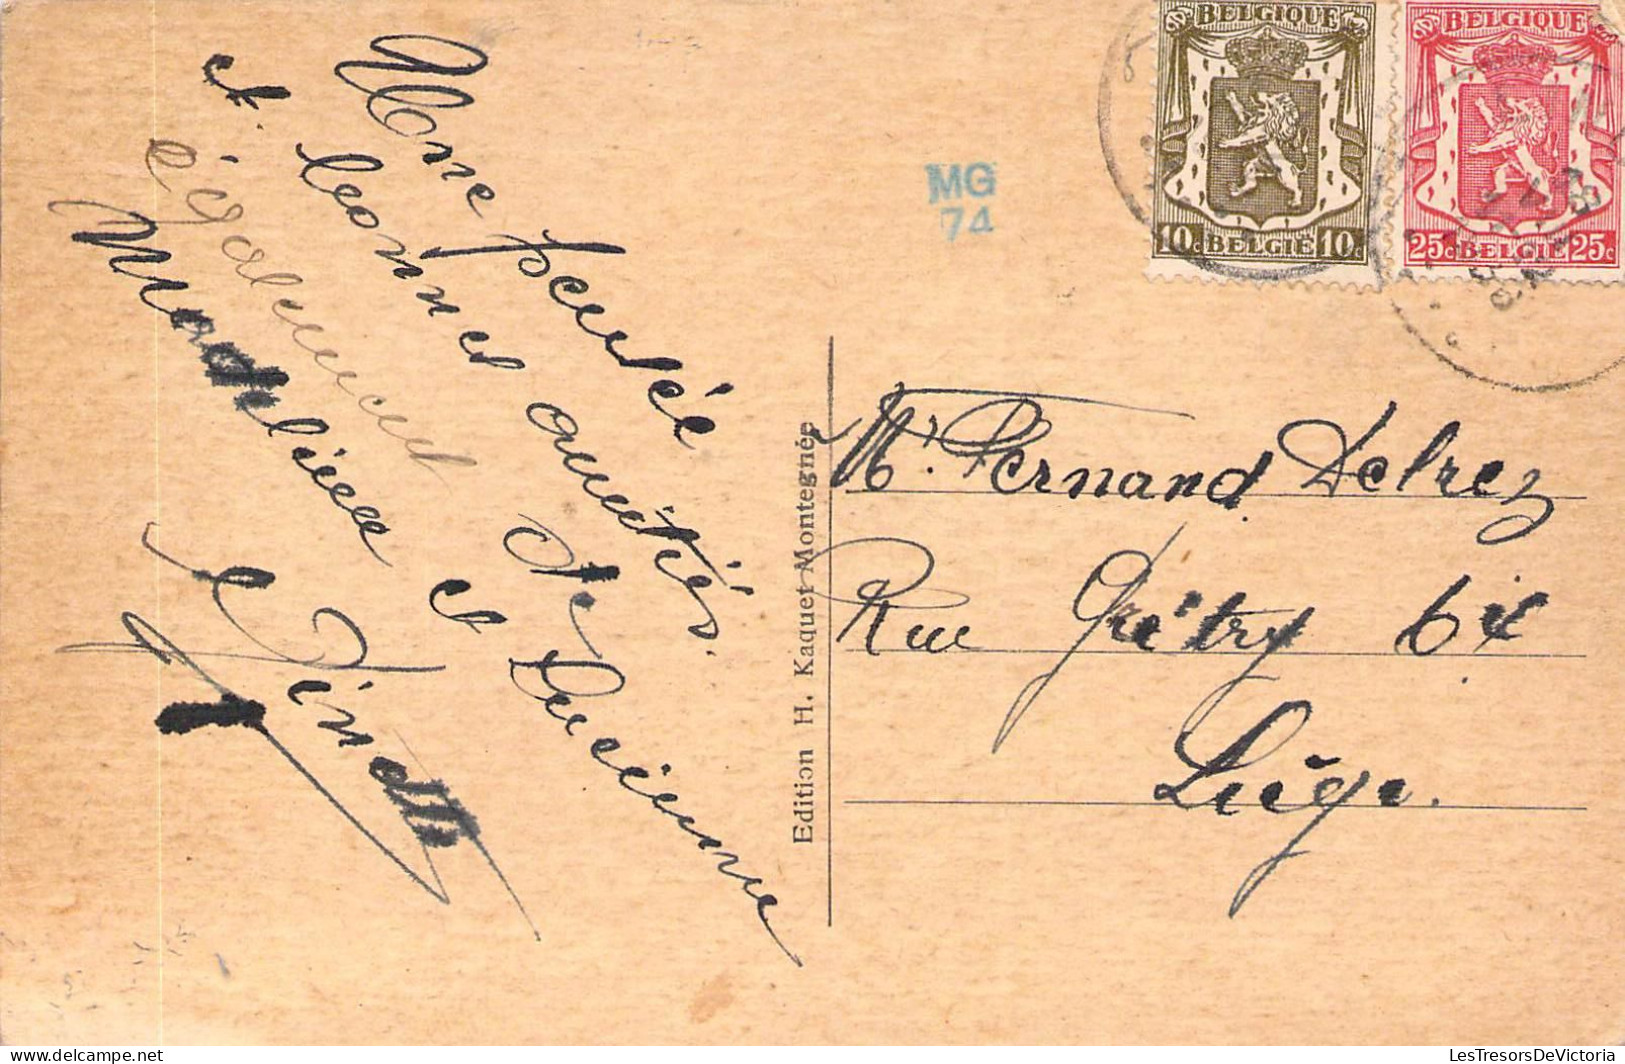 Une pensée
et bonnes amitiés.
également de Lucienne
et
et Ginette
Edition H. Kaquet Montegnée
MG
74
BELGIQUE
10c BELGIË 10c
BELGIQUE
25c BELGIË 25c
Mr. Fernand Delrez
Rue Grétry 64
Liège.
LesTresorsDeVictoria
www.delcampe.net